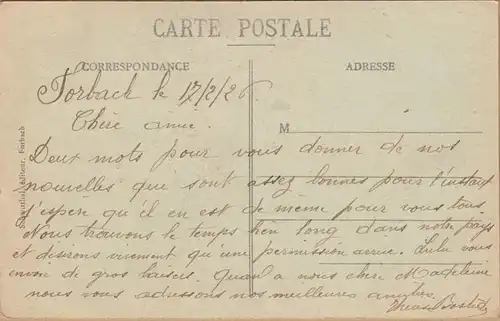 CARTE POSTALE
CORRESPONDANCE
ADRESSE
Forbach le 17/2/26
Chère amie
M
Deux mots pour vous donner de nos
nouvelles que sont assez bonnes pour l'instant
j'espère qu'il en est de même pour vous tous.
Nous trouvons le temps bien long dans notre pays
et désirons vivement qu'une permission arrive. Lulu vous
envoie de gros baisers. Quand a nous chère Madeleine
nous vous adressons nos meilleures amitiés.
éditeur, Forbach